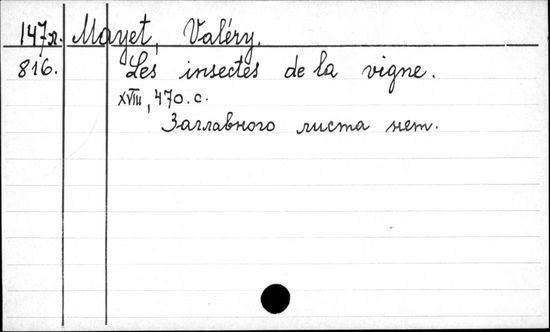 147л. Mayet, Valéry.
816. Les insectes de la vigne.
XVIII, 470. с.
Заглавного листа нет.